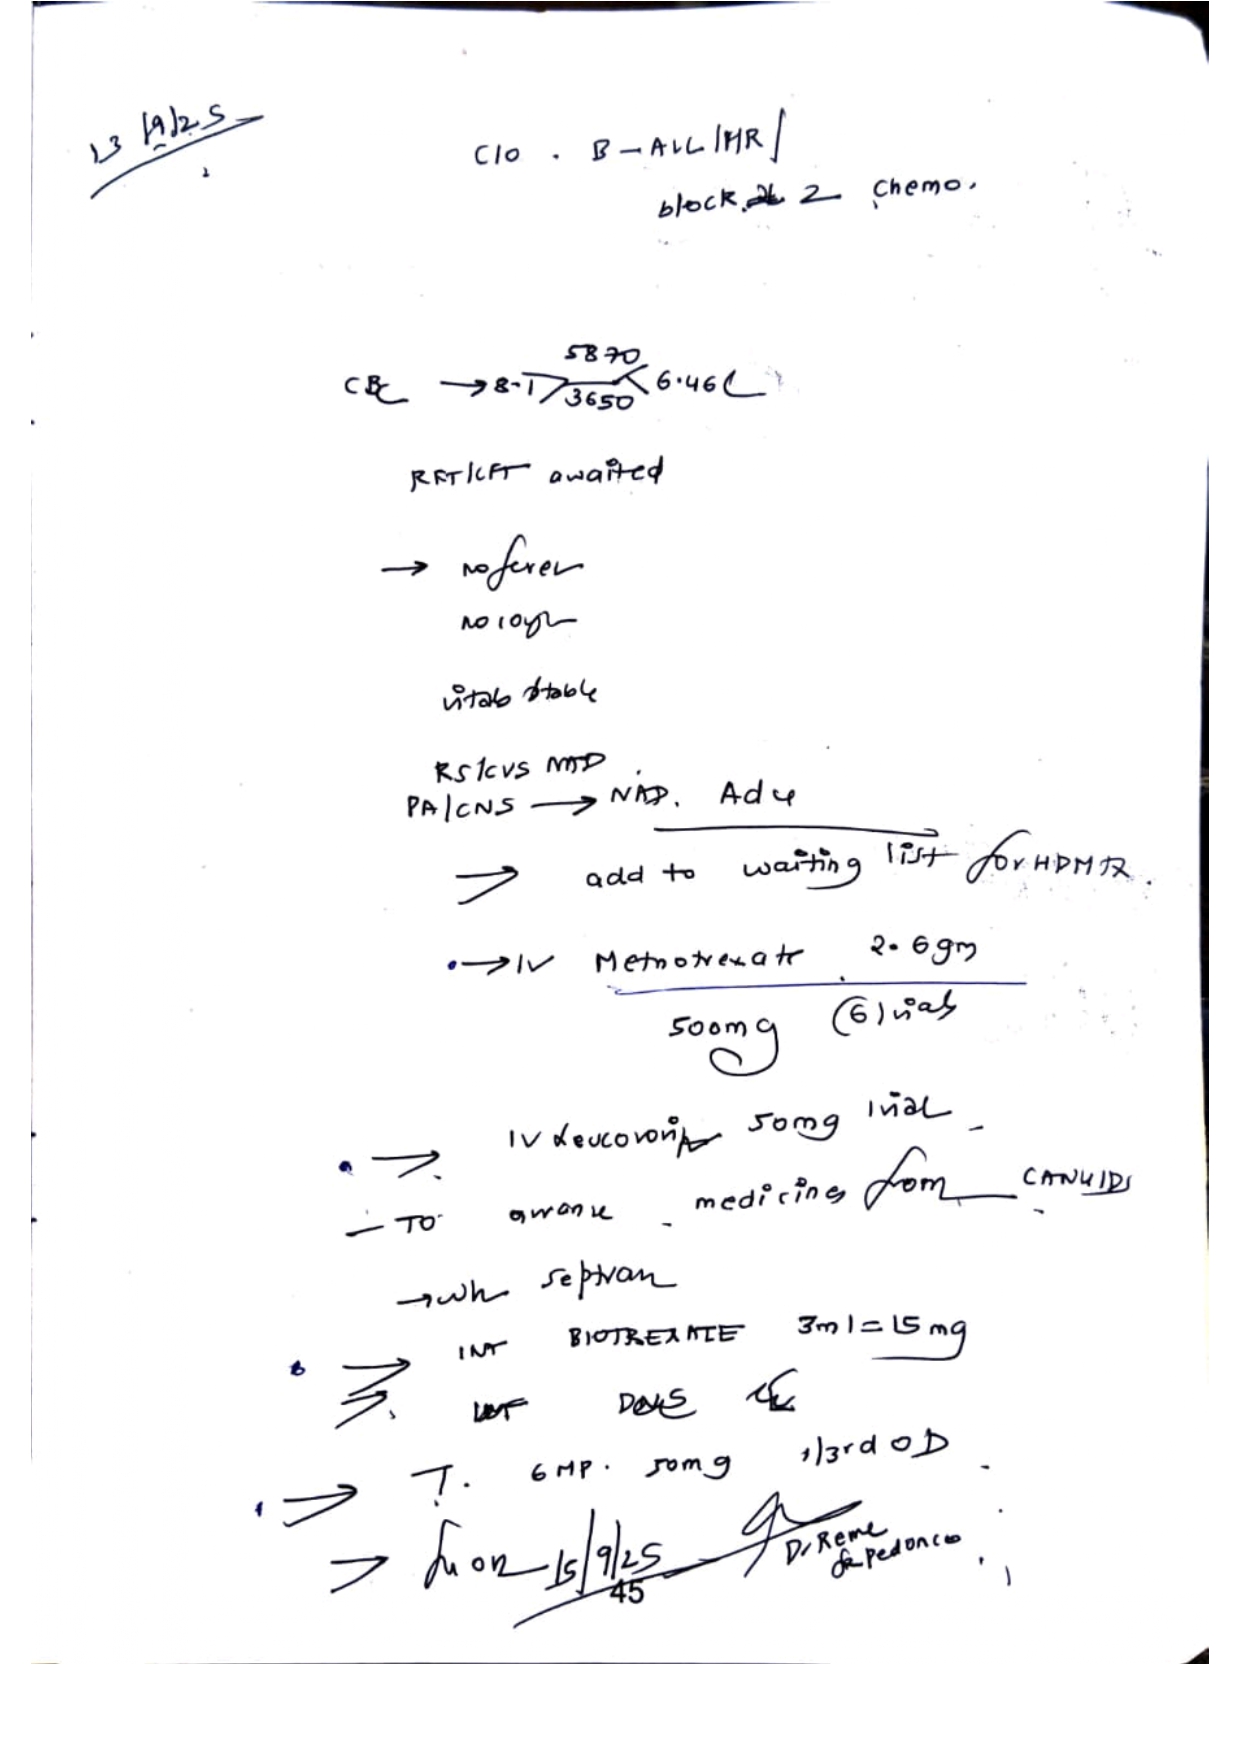 13/9/25
C/O . B-ALL/HR/
block 2 Chemo.
5870
CBC → 8.1 6.46L
3650
RFT/LFT awaited
→ no fever
no cough
vitals stable
RS/CVS NAD
PA/CNS → NAD. Adv
→ add to waiting list for HDMTX.
→ IV Methotrexate 2.6gm
500mg (6) vials
→ IV Leucovorin 50mg 1 vial
- TO arrange medicines from CANKIDS
→ Wh septran
→ INT BIOTREXATE 3ml = 15mg
→
→ T. 6MP. 50mg 1/3rd OD
→ on 15/9/25
Dr Reme
Pedonco
45